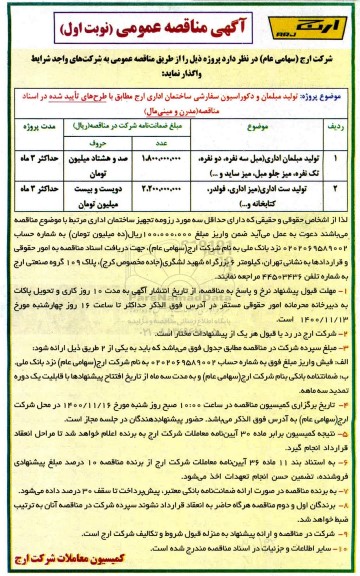 آگهی مناقصه عمومی (نوبت اول)
ارج
ARJ
شرکت ارج (سهامی عام) در نظر دارد پروژه ذیل را از طریق مناقصه عمومی به شرکت‌های واجد شرایط
واگذار نماید:
موضوع پروژه: تولید مبلمان و دکوراسیون سفارشی ساختمان اداری ارج مطابق با طرح‌های تأیید شده در اسناد
مناقصه(مدرن و مینی‌مال)
ردیف موضوع مبلغ ضمانت‌نامه شرکت در مناقصه(ریال) مدت پروژه
عدد حروف
۱ تولید مبلمان اداری(مبل سه نفره، دو نفره، ۱،۸۰۰،۰۰۰،۰۰۰ صد و هشتاد میلیون حداکثر ۳ ماه
تک نفره، میز جلو مبل، میز ساید و ...) تومان
۲ تولید ست اداری(میز اداری، فولدر، ۲،۲۰۰،۰۰۰،۰۰۰ دویست و بیست حداکثر ۳ ماه
کتابخانه و...) میلیون تومان
لذا از اشخاص حقوقی و حقیقی که دارای حداقل سه مورد رزومه تجهیز ساختمان اداری مرتبط با موضوع مناقصه
می‌باشند دعوت به عمل می‌آید ضمن واریز مبلغ ۱۰۰،۰۰۰،۰۰۰ریال(ده میلیون تومان) به شماره حساب
۰۲۰۲۰۶۹۵۸۹۰۰۲ نزد بانک ملی به نام شرکت ارج(سهامی عام)، جهت دریافت اسناد مناقصه به امور حقوقی
و قراردادها به نشانی تهران، کیلومتر ۶ بزرگراه شهید لشگری(جاده مخصوص کرج)، پلاک ۱۰۹ گروه صنعتی ارج
به شماره تلفن ۴۴۵۰۳۴۳۶ مراجعه نمایند.
۱- مهلت قبول پیشنهاد نرخ و پاسخ به مناقصه، از تاریخ انتشار آگهی به مدت ۱۰ روز کاری و تحویل پاکات
به دبیرخانه محرمانه امور حقوقی مستقر در آدرس فوق الذکر حداکثر تا ساعت ۱۶ روز چهارشنبه مورخ
۱۴۰۰/۱۱/۱۳ است.
۲- شرکت ارج در رد یا قبول هر یک از پیشنهادات مختار است.
۳- مبلغ سپرده شرکت در مناقصه مطابق جدول فوق می‌باشد که باید به یکی از ۲ طریق ذیل ارائه شود:
الف: فیش واریز مبلغ فوق به شماره حساب ۰۲۰۲۰۶۹۵۸۹۰۰۲ به نام شرکت ارج(سهامی عام) نزد بانک ملی.
ب: ضمانتنامه بانکی بنام شرکت ارج(سهامی عام) و به مدت سه ماه از تاریخ افتتاح پیشنهادها با قابلیت یک دوره
تمدید سه ماهه.
۴- تاریخ برگزاری کمیسیون مناقصه در ساعت ۱۰:۰۰ صبح روز شنبه مورخ ۱۴۰۰/۱۱/۱۶ در محل شرکت
ارج(سهامی عام) به آدرس فوق الذکر می‌باشد. حضور پیشنهاددهندگان در جلسه مجاز است.
۵- نتیجه کمیسیون برابر ماده ۳۰ آیین‌نامه معاملات شرکت ارج به برنده اعلام خواهد شد تا مراحل انعقاد
قرارداد انجام گیرد.
۶- به استناد بند ۱۱ ماده ۳۶ آیین‌نامه معاملات شرکت ارج از برنده مناقصه ۱۰ درصد مبلغ پیشنهادی
فروشنده، تضمین حسن انجام تعهدات اخذ می‌شود.
۷- به برنده مناقصه در صورت ارائه ضمانت‌نامه بانکی معتبر، پیش‌پرداخت تا سقف ۳۰ درصد داده می‌شود.
۸- برندگان اول و دوم مناقصه هرگاه حاضر به انعقاد قرارداد نشوند سپرده شرکت در مناقصه آنان به ترتیب
ضبط خواهد شد.
۹- شرکت در مناقصه و ارائه پیشنهاد به منزله قبول شروط و تکالیف شرکت ارج است.
۱۰- سایر اطلاعات و جزئیات در اسناد مناقصه مندرج شده است.
کمیسیون معاملات شرکت ارج